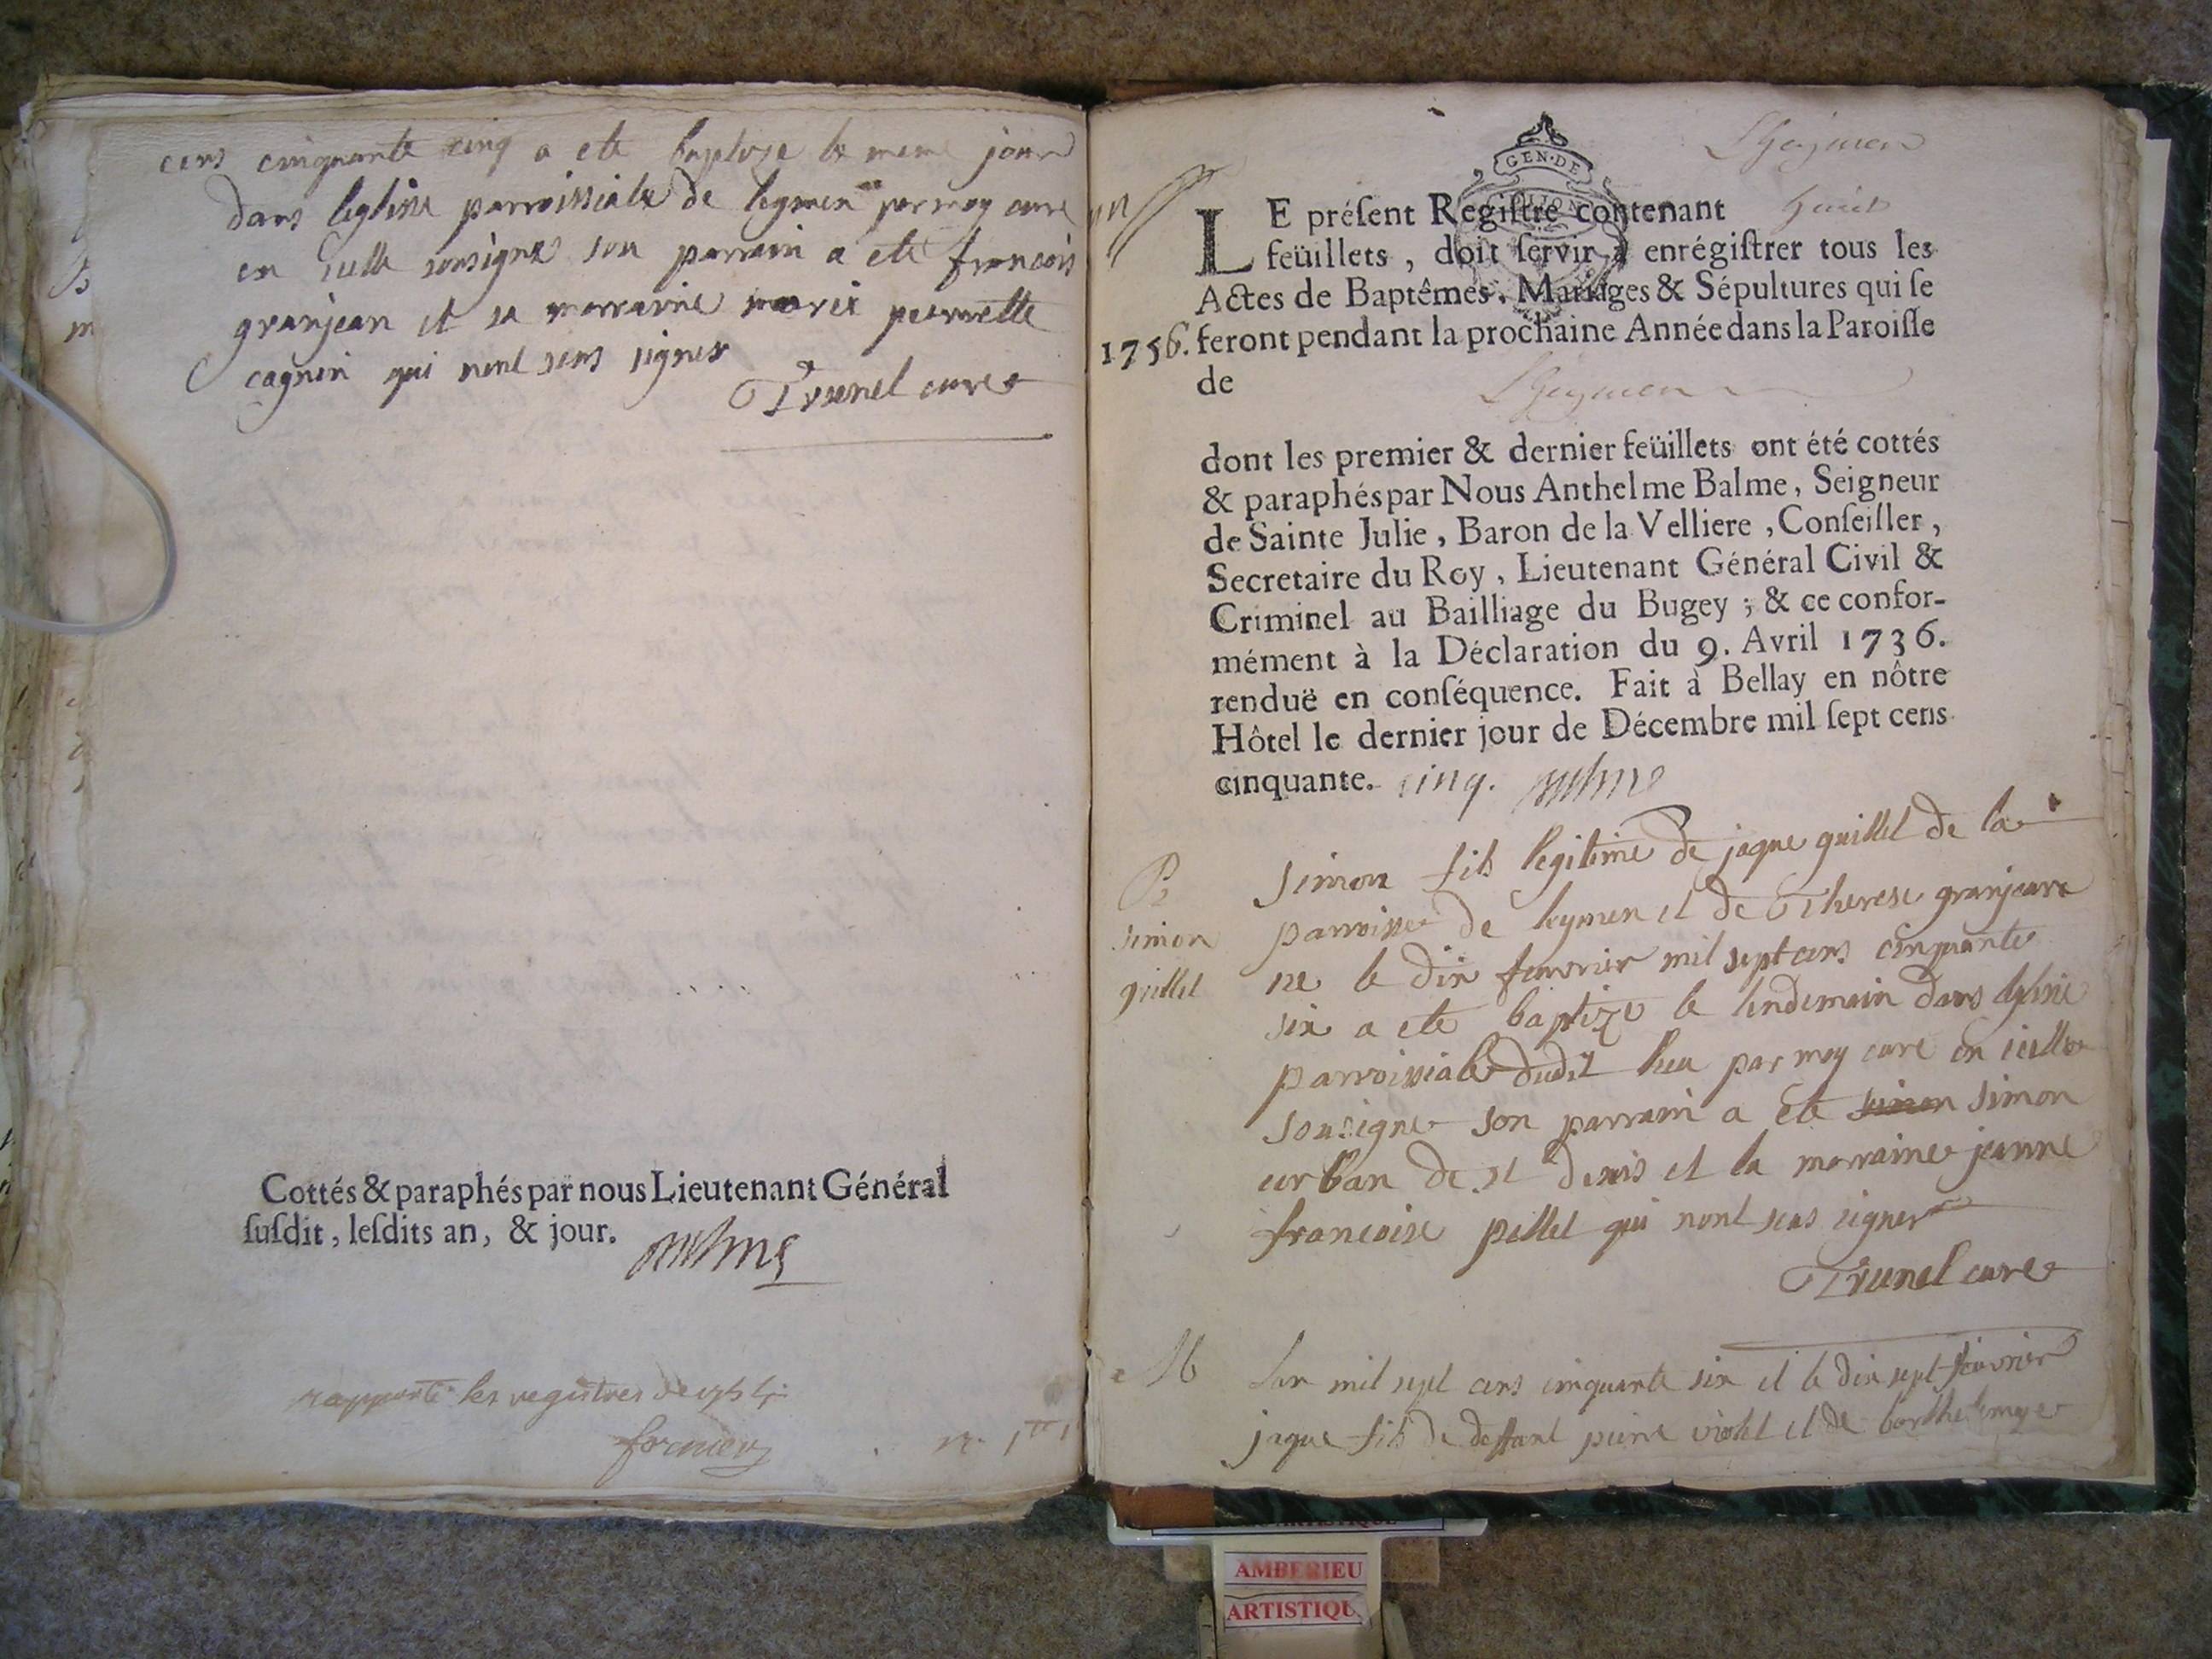 cens cinquante cinq a ete baptize le meme jour
dans leglise parroissiale de leymen par moy cure
en icelle sousigne son parrain a ete francois
granjean et sa marraine marie pierrette
cagnin qui nont seus signer
Trunel cure
Cottés & paraphés par nous Lieutenant Général
ſuſdit, leſdits an, & jour.
rapporté les registres de
GEN·DE
Lheymen
un
LE préſent Regiſtre contenant huit
feüillets, doit ſervir à enrégiſtrer tous les
Actes de Baptêmes, Mariages & Sépultures qui ſe
1756. feront pendant la prochaine Année dans la Paroiſſe
de Lheymen
dont les premier & dernier feüillets ont été cottés
& paraphés par Nous Anthelme Balme, Seigneur
de Sainte Julie, Baron de la Velliere, Conſeiller,
Secretaire du Roy, Lieutenant Général Civil &
Criminel au Bailliage du Bugey; & ce confor-
mément à la Déclaration du 9. Avril 1736.
renduë en conſéquence. Fait à Bellay en nôtre
Hôtel le dernier jour de Décembre mil ſept cens
cinquante. cinq. Balme
B
simon
quillet
simon fils legitime de jaque quillet de la
parroisse de leymen et de Therese granjean
ne le dix fevrier mil sept cens cinquante
six a ete baptize le lendemain dans leglise
parroissiale dudit lieu par moy cure en icelle
sousigne son parrain a ete simon simon
urban de st denis et la marraine jeanne
francoise pillet qui nont seus signer
Trunel cure
M
lan mil sept cens cinquante six et le dix sept fevrier
jaque fils de deffant pierre violet et de barthelemye
AMBERIEU
ARTISTIQU